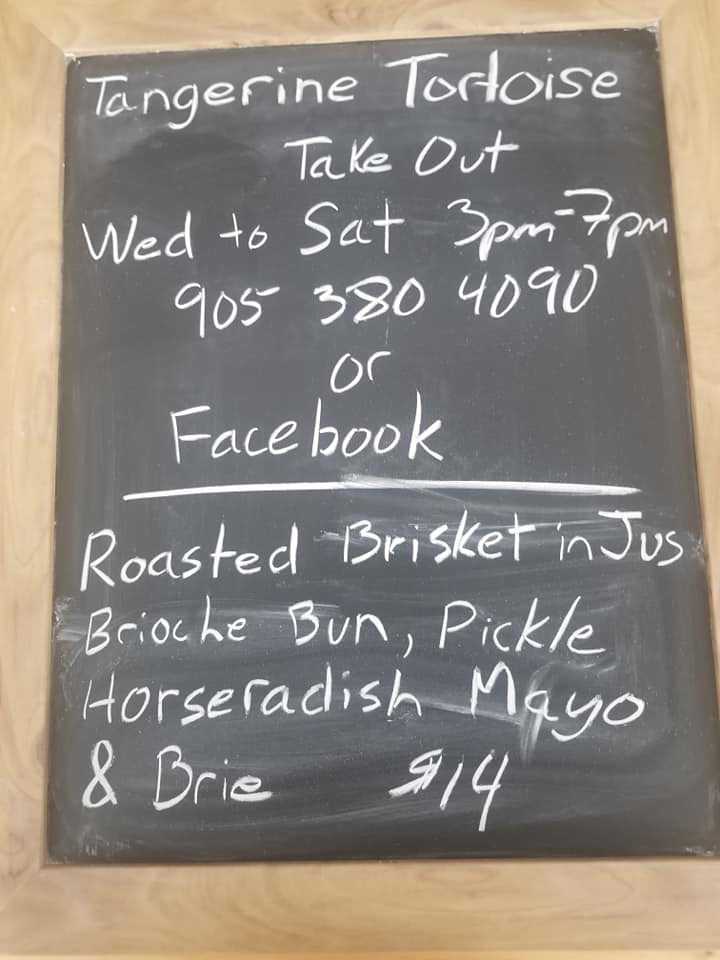 Tangerine Tortoise
Take Out
Wed to Sat 3pm-7pm
905 380 4090
or
Facebook
Roasted Brisket in Jus
Brioche Bun, Pickle
Horseradish Mayo
& Brie $14